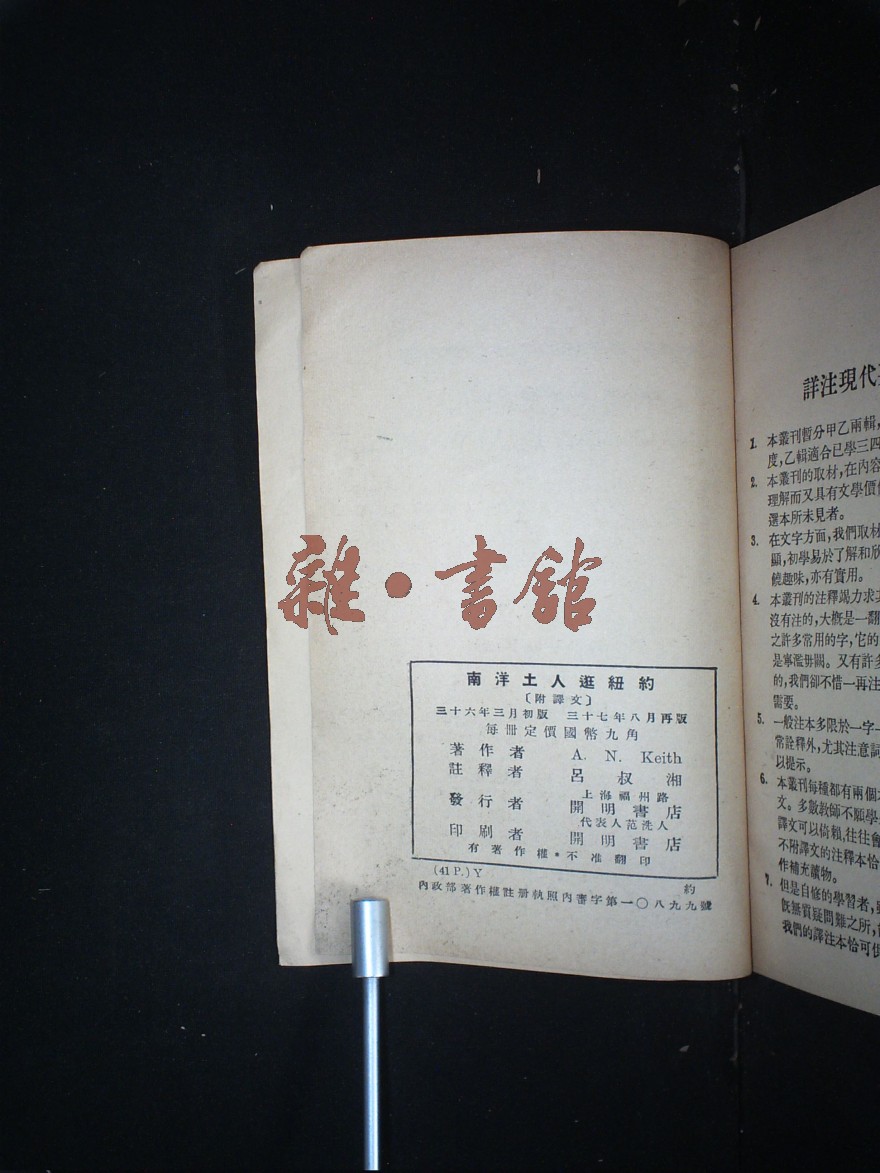 雜·書館
南洋土人逛紐約
〔附譯文〕
三十六年三月初版 三十七年八月再版
每冊定價國幣九角
著作者 A. N. Keith
註釋者 呂叔湘
上海福州路
發行者 開明書店
代表人范洗人
印刷者 開明書店
有著作權*不准翻印
(41 P.) Y 約
內政部著作權註册執照內審字第一〇八九九號
詳注現代
1. 本叢刊暫分甲乙兩輯,
度,乙輯適合已學三四
2. 本叢刊的取材,在內容
理解而又具有文學價
選本所未見者。
3. 在文字方面,我們取材
顯,初學易於了解和欣
饒趣味,亦有實用。
4. 本叢刊的注釋竭力求
沒有注的,大概是一翻
之許多常用的字,它的
是寧濫毋闕。又有許多
的,我們卻不惜一再注
需要。
5. 一般注本多限於一字一
常詮釋外,尤其注意詞
以提示。
6. 本叢刊每種都有兩個
文。多數教師不願學
譯文可以倚賴,往往會
不附譯文的注釋本恰
作補充讀物。
7. 但是自修的學習者,
旣無質疑問難之所,
我們的譯注本恰可供